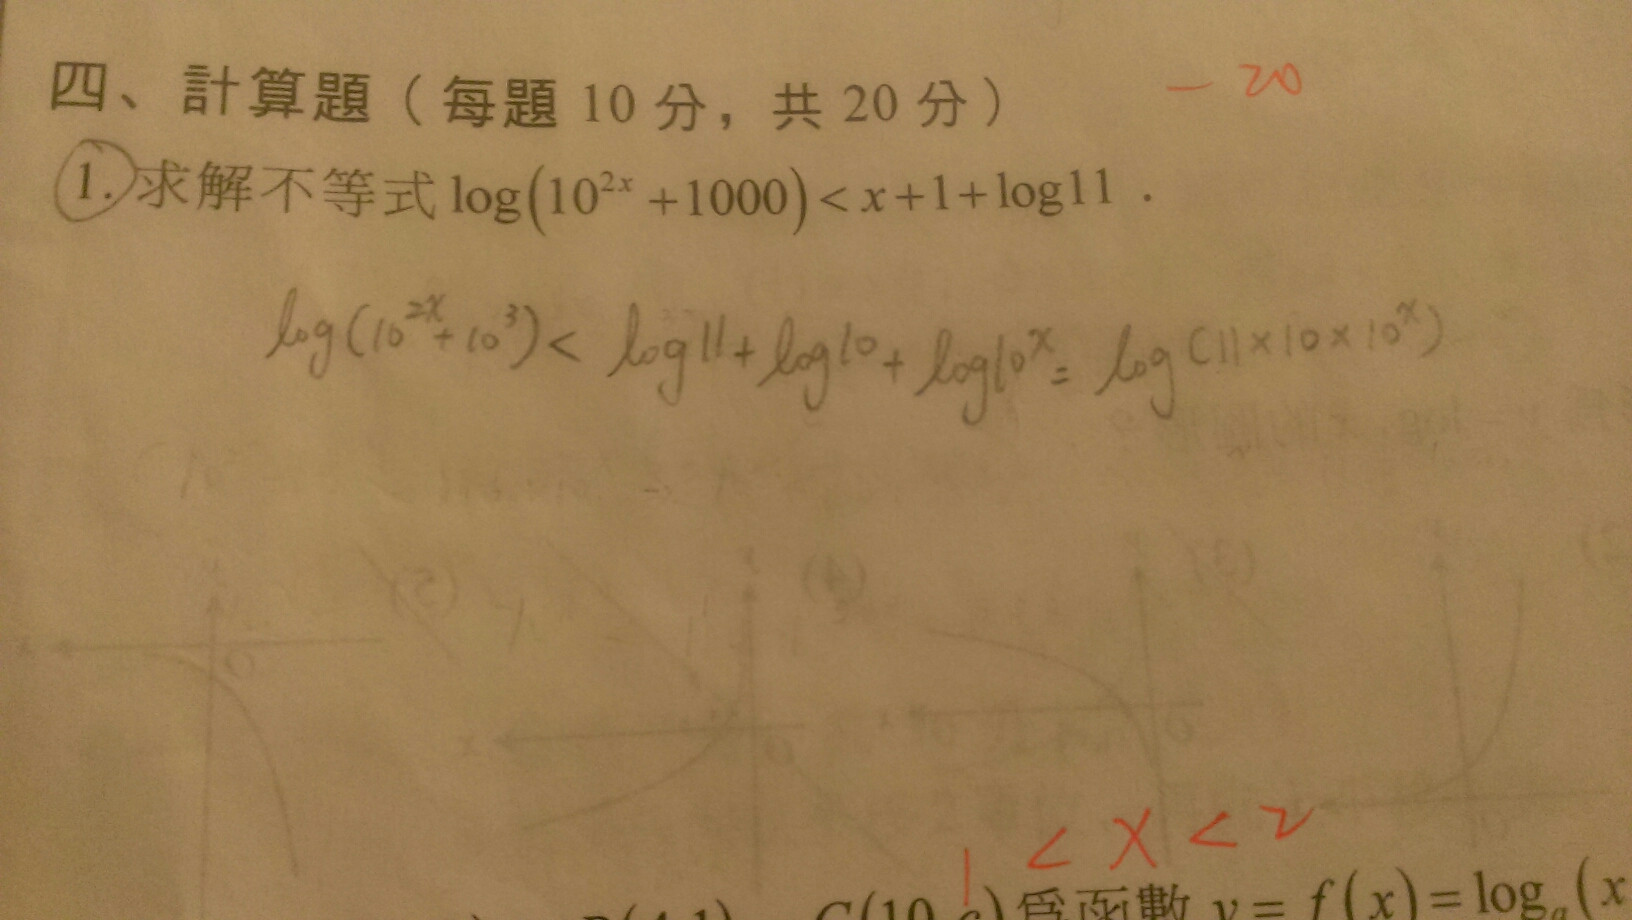 四、計算題（每題 10 分，共 20 分） － 20
1. 求解不等式 log(10^{2x} +1000) < x+1+log11．
log(10^{2x}+10^3) < log11 + log10 + log10^x = log(11×10×10^x)
1 < x < 2
C(10, c) 為函數 y = f(x) = log_a (x